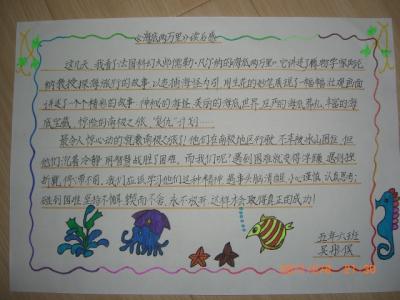 《海底两万里》读后感
这几天,我看了法国科幻大师儒勒·凡尔纳的《海底两万里》。它讲述了博物学家阿龙
纳教授探海旅行的故事,以悬
讲述了一个个精彩的故事。神秘的海怪、美丽的海底世界、庄严的海底葬礼、丰富的海
底宝藏、惊险的南极之旅、"复仇"计划……
最令人惊心动魄的就数南极之旅了!他们在南极地区行驶,不幸被冰山困住,但
他们沉着冷静,用智慧战胜了困难。而我们呢?遇到困难就变得浮躁,遇到挫
折就停滞不前。我们应该学习他们这种精神,遇事头脑清醒,小心谨慎,认真思考;
碰到困难,坚持不懈,锲而不舍,永不放弃,这样才会取得真正的成功!
五年六班